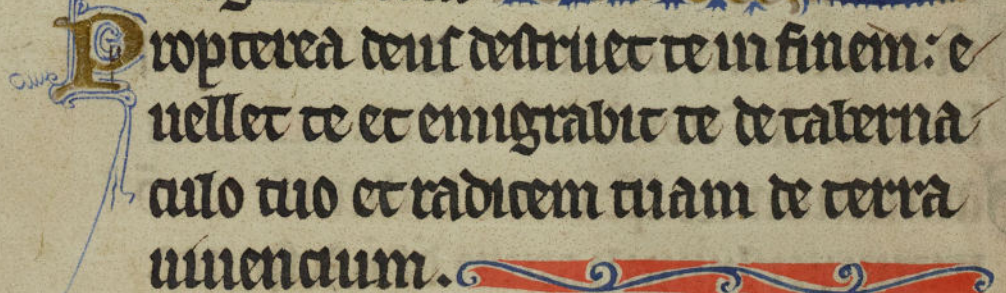 Propterea deus destruet te in finem: e
uellet te et emigrabit te de taberna
culo tuo et radicem tuam de terra
uiuencium.